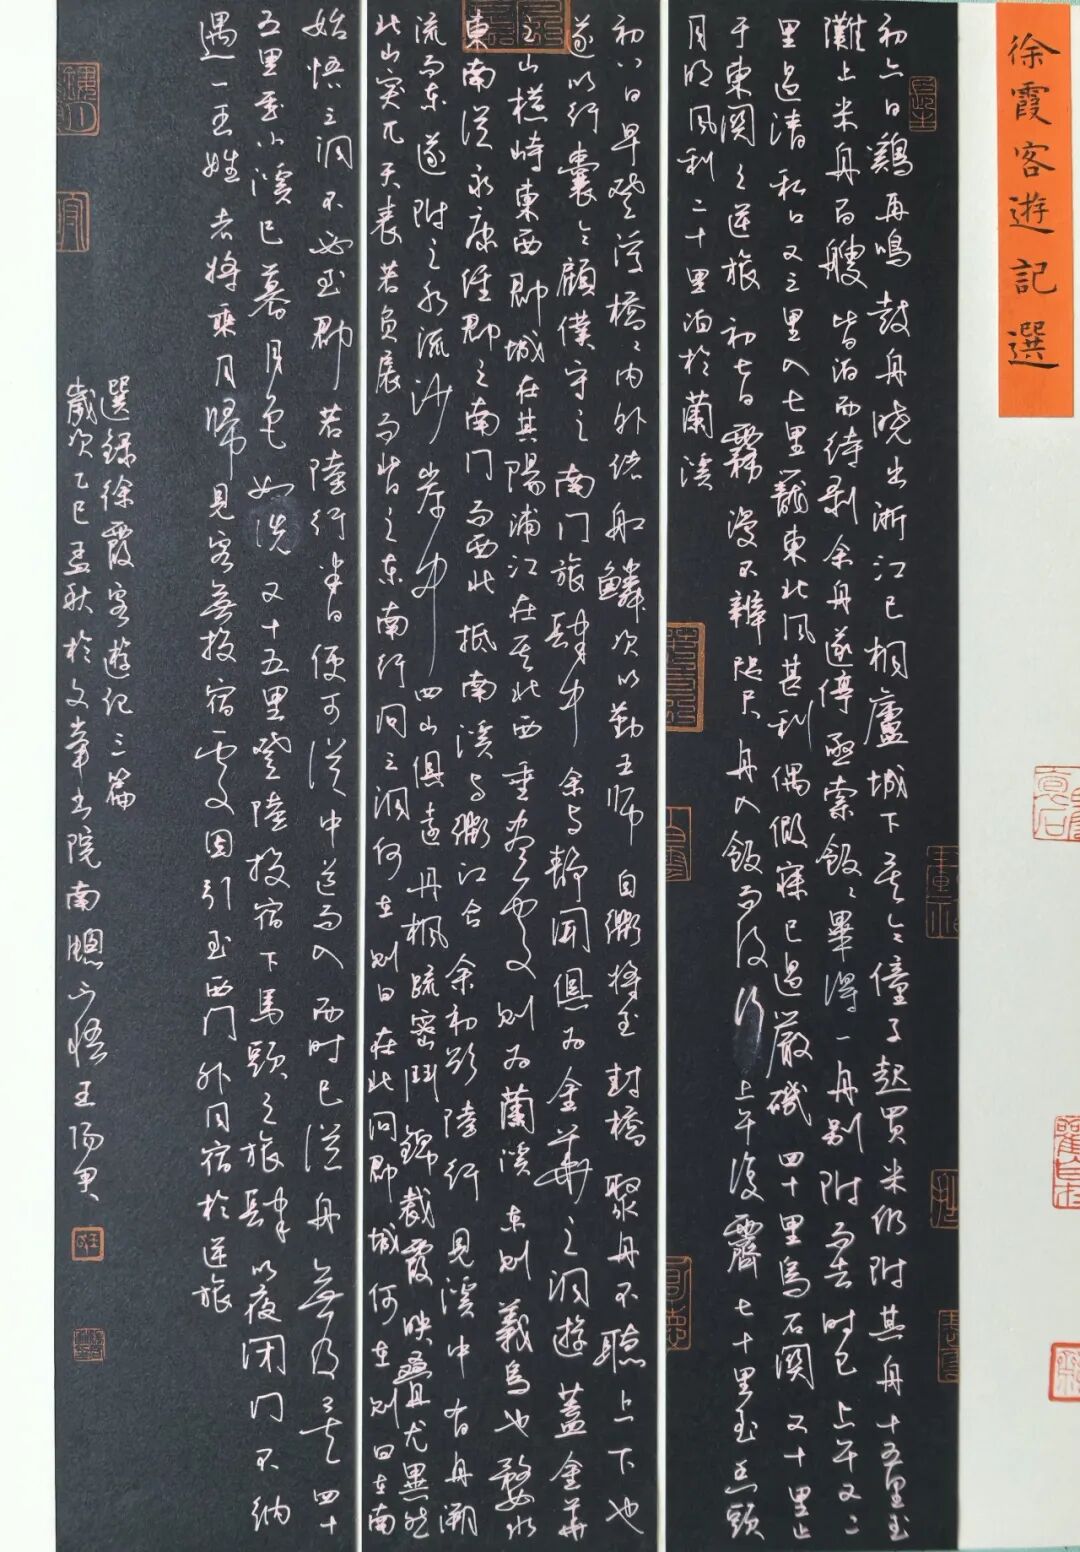 徐霞客遊記選
初六日鷄再鳴鼓舟曉出浙江已桐廬城下矣令僮子起買米仍附其舟十五里至
灘上米舟百艘皆泊而待剥余舟遂停亟索飯〻畢得一舟别附而去時已上午又二
里過清私口又三里入七里籠東北風甚利偶假寐已過嚴磯四十里烏石關又十里止
于東關之逆旅初七日霧漫不辨咫尺舟人飯而後行上午復霽七十里至香頭
月明風利二十里泊於蘭溪
初八日早登浮橋〻内外諸舡鱗次以勤王師自衢將至封橋聚舟不聽上下也
遂以行囊令顧僕守之南门旅肆中余与静闻俱为金華之洞遊蓋金華
之山橫峙東西郡城在其陽浦江在其北西垂盡處则为蘭溪东则義烏也婺水
東南從永康經郡之南门而西北抵南溪与衢江合余初欲陸行見溪中有舟溯
流而东遂附之水流沙岸中四山俱遠丹枫疏密鬥錦裁霞映疊尤異然
北山突兀天表若負扆而背之东南行问三洞何在则曰在北问郡城何在则曰在南
始悟三洞不必至郡若陸行半日便可從中道而入而时已從舟無及矣四十
五里至小溪已暮月色如洗又十五里登陸投宿下馬頭之旅肆以夜闭门不纳
遇一王姓者将乘月歸見客無投宿處因引至西门外同宿於逆旅
選錄徐霞客遊记三篇
歲次乙巳孟秋於文章書院南牕下悟王陽君